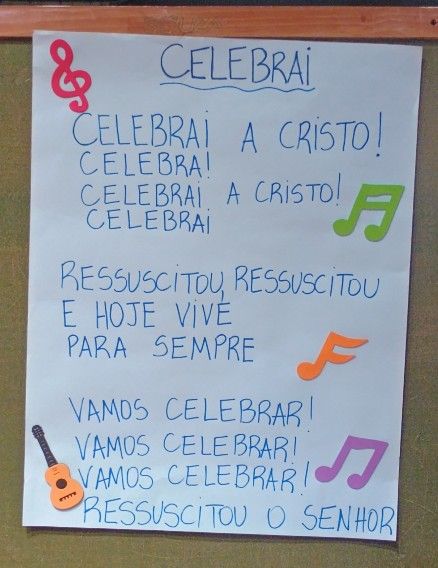 CELEBRAI
CELEBRAI A CRISTO!
CELEBRA!
CELEBRAI A CRISTO!
CELEBRAI
RESSUSCITOU, RESSUSCITOU
E HOJE VIVE
PARA SEMPRE
VAMOS CELEBRAR!
VAMOS CELEBRAR!
VAMOS CELEBRAR!
RESSUSCITOU O SENHOR